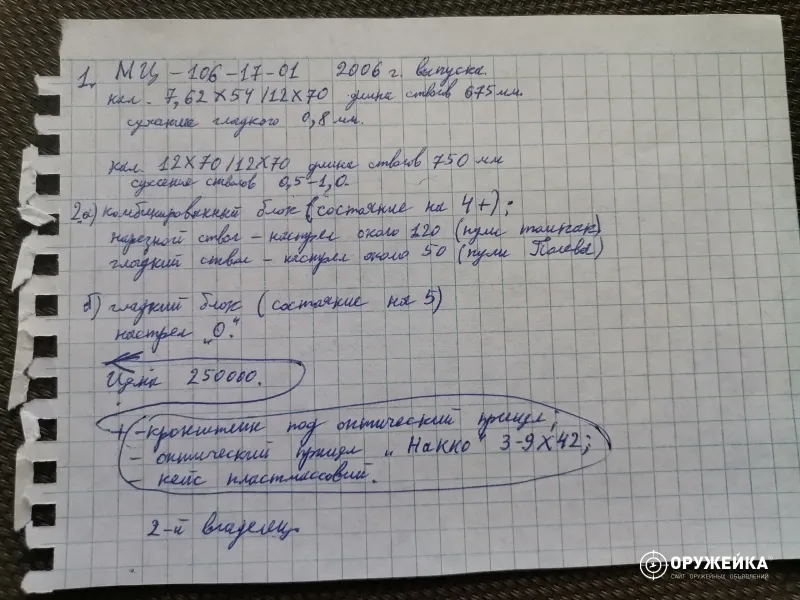 1. МЦ-106-17-01 2006 г. выпуска.
кал. 7,62х54/12х70 длина стволов 675 мм.
сужение гладкого 0,8 мм.
кал. 12х70/12х70 длина стволов 750 мм
сужение стволов 0,5-1,0.
2.а) комбинированный блок (состояние на 4+);
нарезной ствол - настрел около 120 (пули томпак)
гладкий ствол - настрел около 50 (пули Полева)
б) гладкий блок (состояние на 5)
настрел „0."
Цена 250000.
+ - кронштейн под оптический прицел;
- оптический прицел „Hakko" 3-9х42;
- кейс пластмассовый.
2-й владелец.
ОРУЖЕЙКА
САЙТ ОРУЖЕЙНЫХ ОБЪЯВЛЕНИЙ